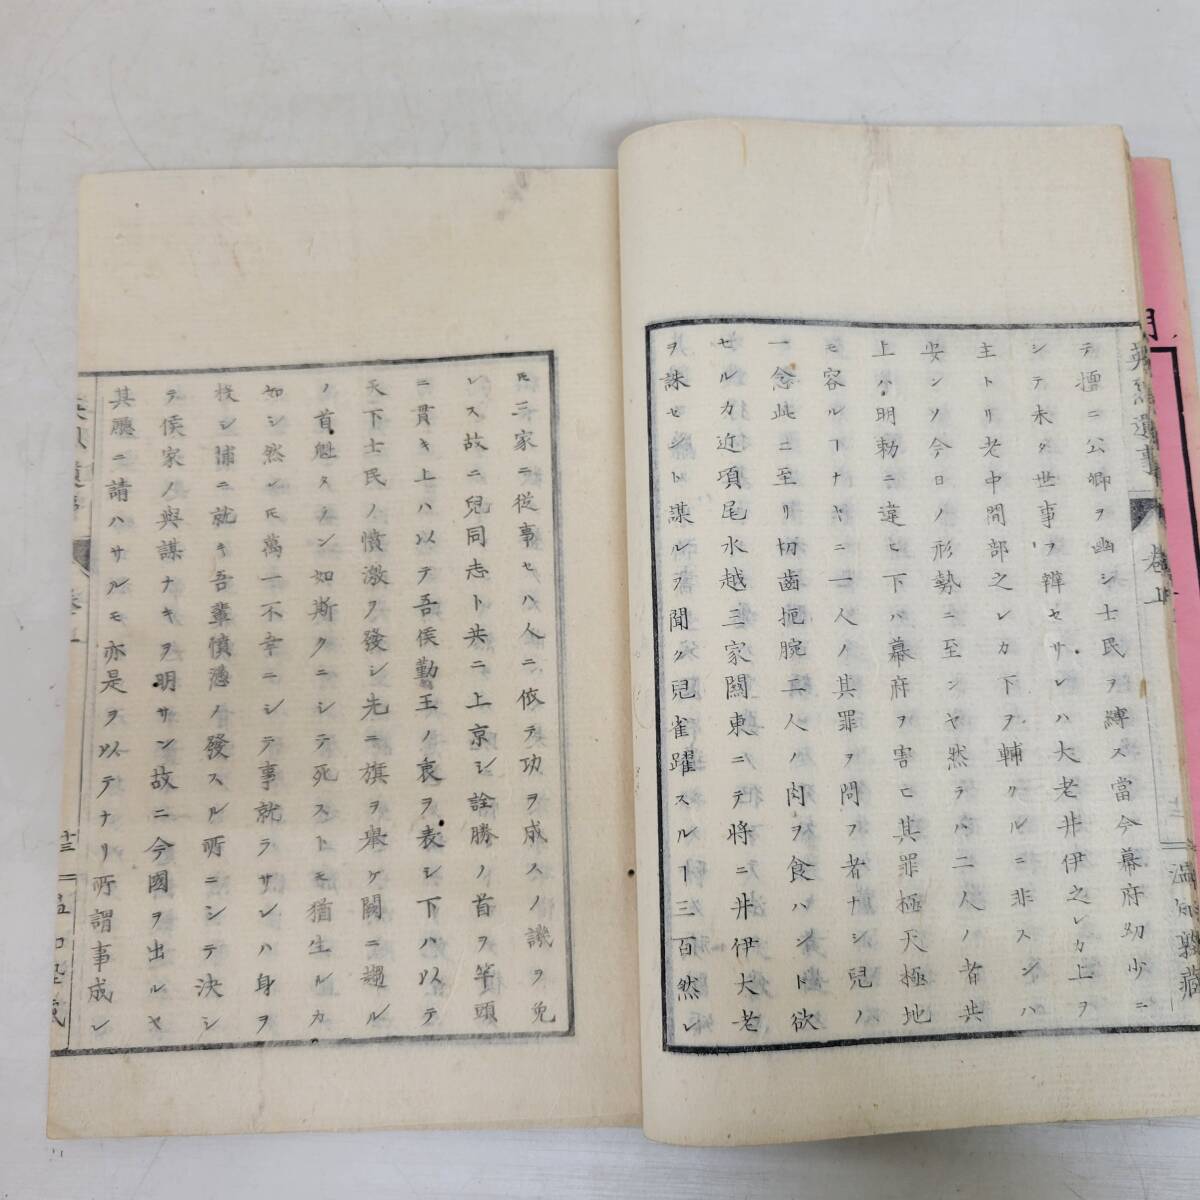 月
英烈遺事
卷上
温知塾蔵
テ擅ニ公卿ヲ幽シ士民ヲ縛ス當今幕府幼少ニ
シテ未タ世事ヲ辨セサレハ大老井伊之レカ上ヲ
主トリ老中間部之レカ下ヲ輔クルニ非スンハ
安ンソ今日ノ形勢ニ至ンヤ然ラハ二人ノ者共
上ハ明勅ニ違ヒ下ハ幕府ヲ害ヒ其罪極天極地
モ容ルヿナキニ一人ノ其罪ヲ問フ者ナシ兒ノ
一念此ニ至リ切齒扼腕二人ノ肉ヲ食ハント欲
セルカ近項尾水越三家關東ニテ將ニ井伊大老
ヲ誅セント謀ルヲ聞ク兒雀躍スルヿ三百然レ
𪜈三家ニ従事セハ人ニ依テ功ヲ成スノ譏ヲ免
レス故ニ兒同志ト共ニ上京シ詮勝ノ首ヲ竿頭
ニ貫キ上ハ以テ吾侯勤王ノ衷ヲ表シ下ハ以テ
天下士民ノ憤激ヲ發シ先ニ旗ヲ舉ケ闕ニ趨ル
ノ首魁タラン如斯クニシテ死ストモ猶生ルカ
如シ然レ𪜈萬一不幸ニシテ事就ラサレハ身ヲ
挍シ捕ニ就キ吾輩憤懣ノ發スル所ニシテ決シ
テ侯家ノ與謀ナキヲ明サン故ニ今國ヲ出ルヤ
其聽ニ請ハサルモ亦是ヲ以テナリ所謂事成レ
廿三